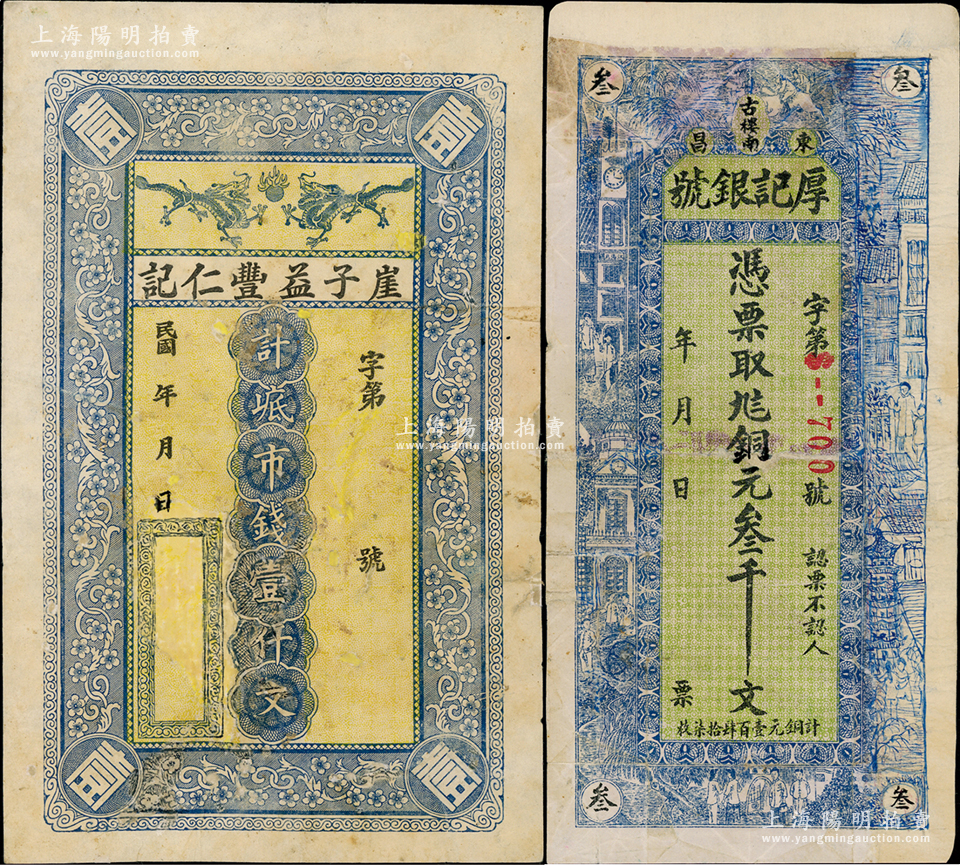 上海陽明拍賣
www.yangmingauction.com
壹
壹
崖子益豐仁記
字第
號
計岻市錢壹仟文
民國
年
月
日
壹
壹
叁
叁
古樓南
東
昌
厚記銀號
字第
--700
號
認票不認人
憑票取兑銅元叁千
文
年
月
日
票
計銅元壹百肆拾柒枚
叁
叁
上海陽明拍賣
www.yangmingauction.com
上海陽明拍賣
www.yangmingauction.com